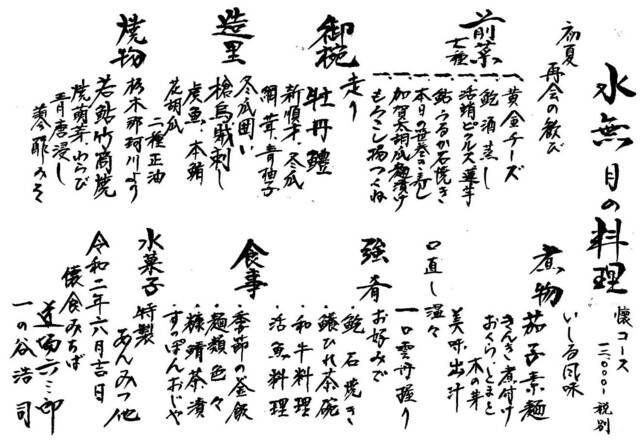 水無月の料理
懐コース
一三、〇〇〇 税別
初夏 再会の歓び
前菜
七種
一、黄金チーズ
一、鮑酒蒸し
一、活蛸ピクルス 蓮芋
一、鮎うるか石焼き
一、本日笹巻き寿し
一、加賀太胡瓜麹漬け
一、もろこし揚つくね
御椀
走り
牡丹鱧
新順才、冬瓜
網茸、青柚子
造里
冬瓜囲い
槍烏賊刺し
虎魚、本鮪
花胡瓜
二種正油
焼物
栃木那珂川より
若鮎竹筒焼
焼萌芽わらび
青唐浸し
蓼酢みそ
煮物
いしる風味
茄子素麺
きんき煮付け
おくら、とまと
木の芽
美味出汁
口直し 温々
一口雲丹握り
強肴
お好みで
・鮑 石焼き
・鱶ひれ茶碗
・和牛料理
・活魚料理
食事
・季節の釜飯
・麺類色々
・糠鯖茶漬
・すっぽんおじや
水菓子
特製
あんみつ他
令和二年六月吉日
懐食みちば
道場六三郎
一の谷浩司